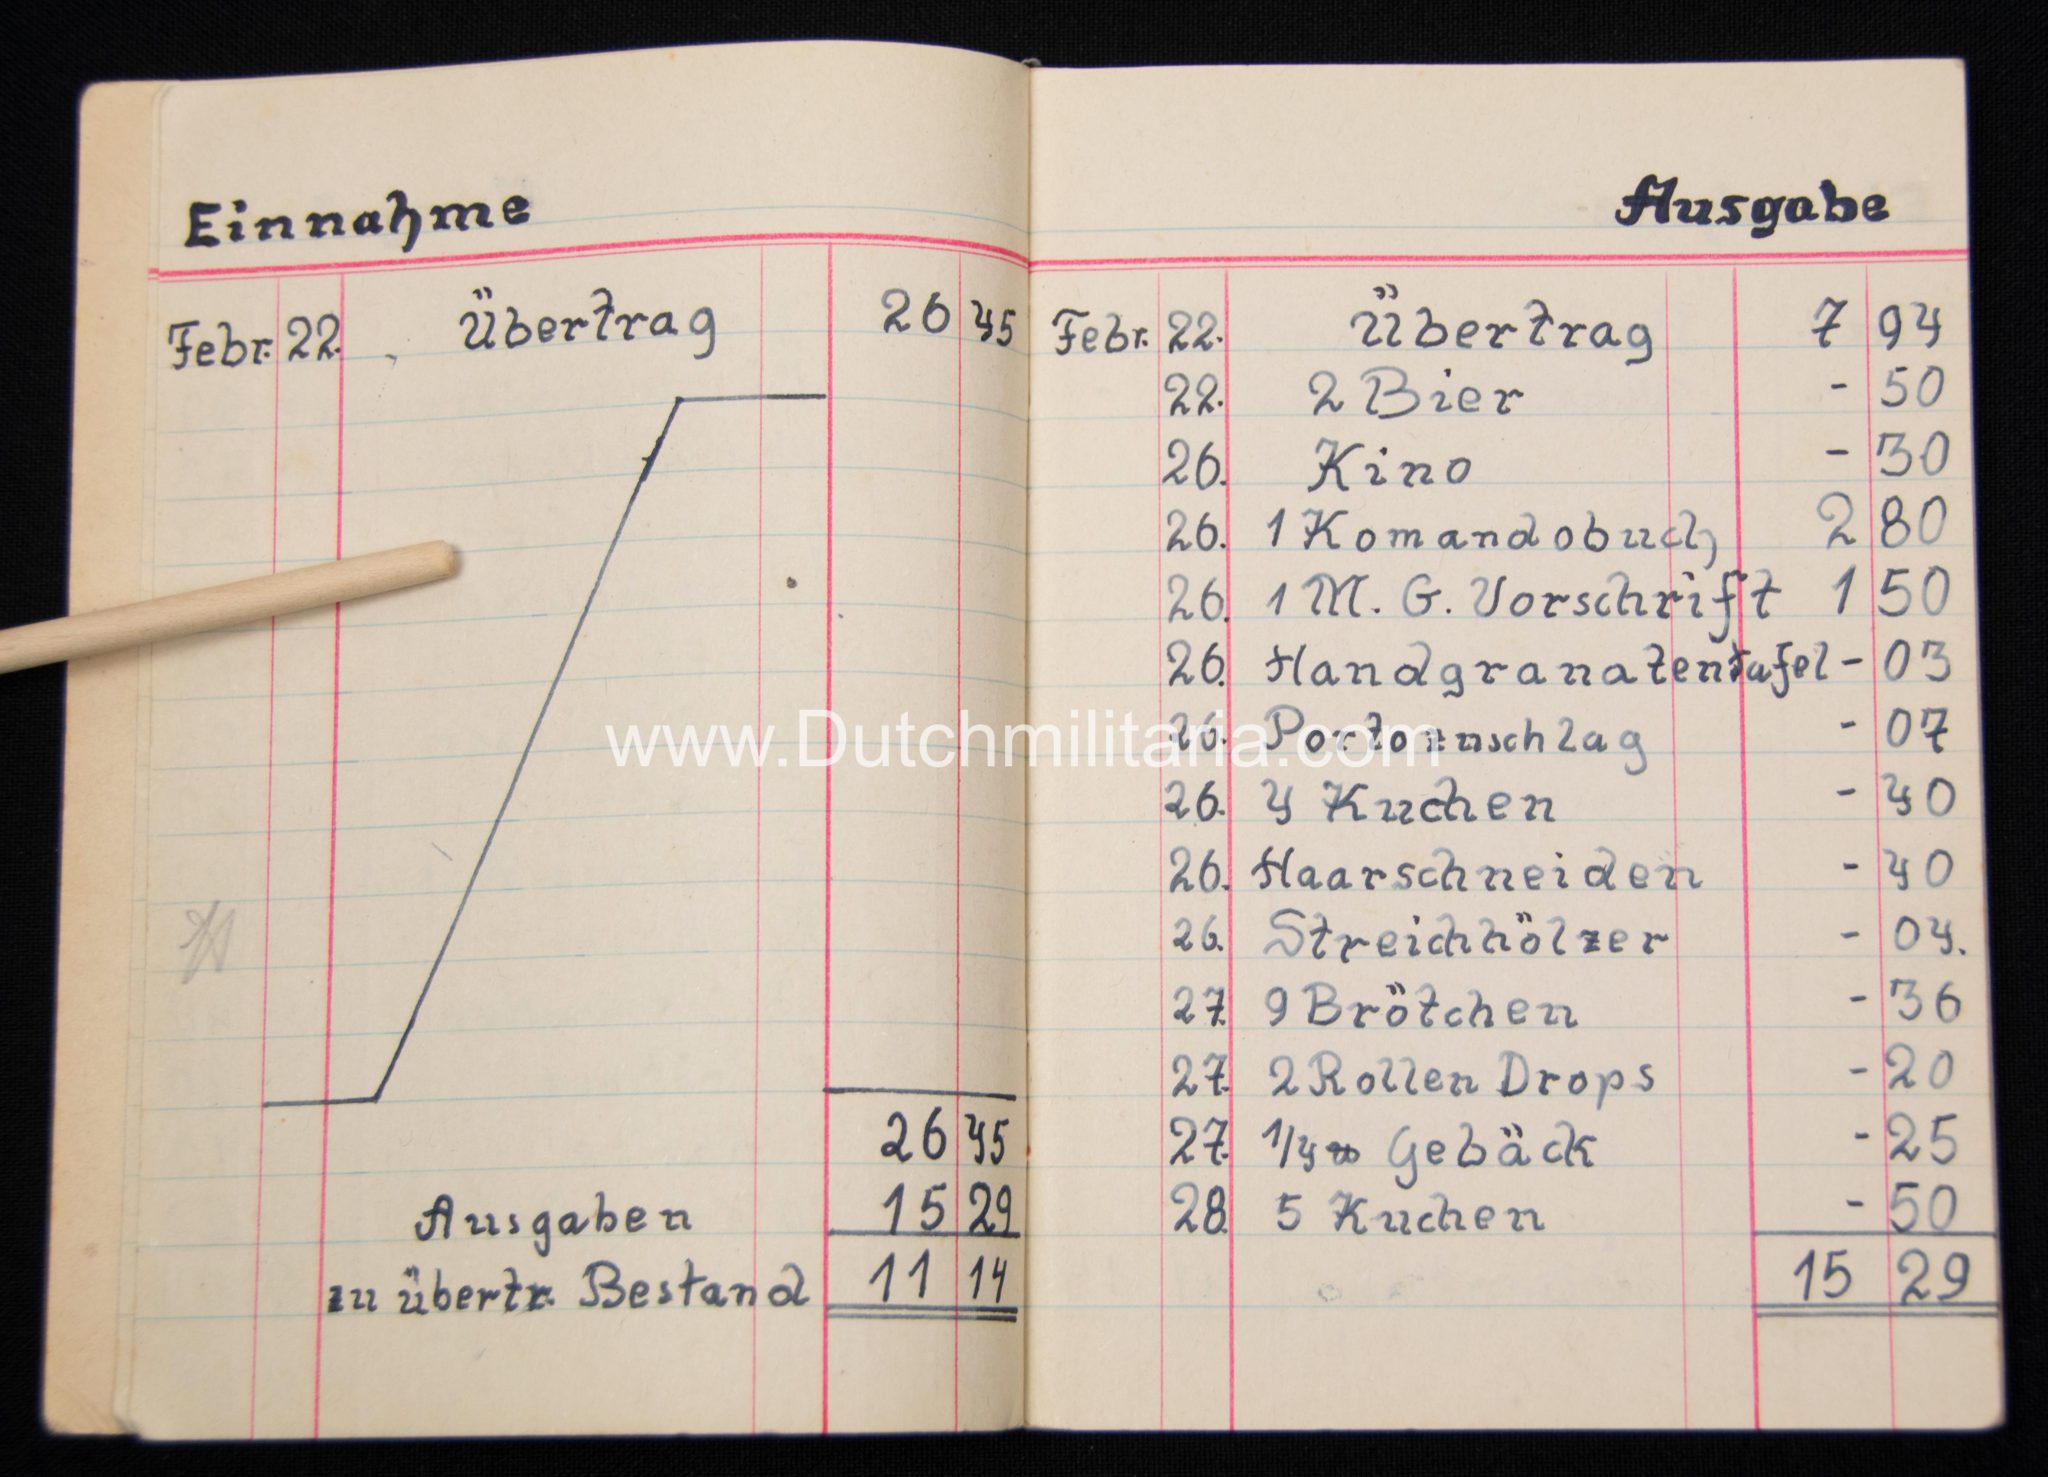 Einnahme
Febr. 22. Übertrag 26 45
26 45
Ausgaben 15 29
zu übertr. Bestand 11 14
Ausgabe
Febr. 22. Übertrag 7 94
22. 2 Bier - 50
26. Kino - 30
26. 1 Komandobuch 2 80
26. 1 M. G. Vorschrift 1 50
26. Handgranatentafel - 03
26. Portozuschlag - 07
26. 4 Kuchen - 40
26. Haarschneiden - 40
26. Streichhölzer - 04.
27. 9 Brötchen - 36
27. 2 Rollen Drops - 20
27. 1/4 Gebäck - 25
28. 5 Kuchen - 50
15 29
www.Dutchmilitaria.com